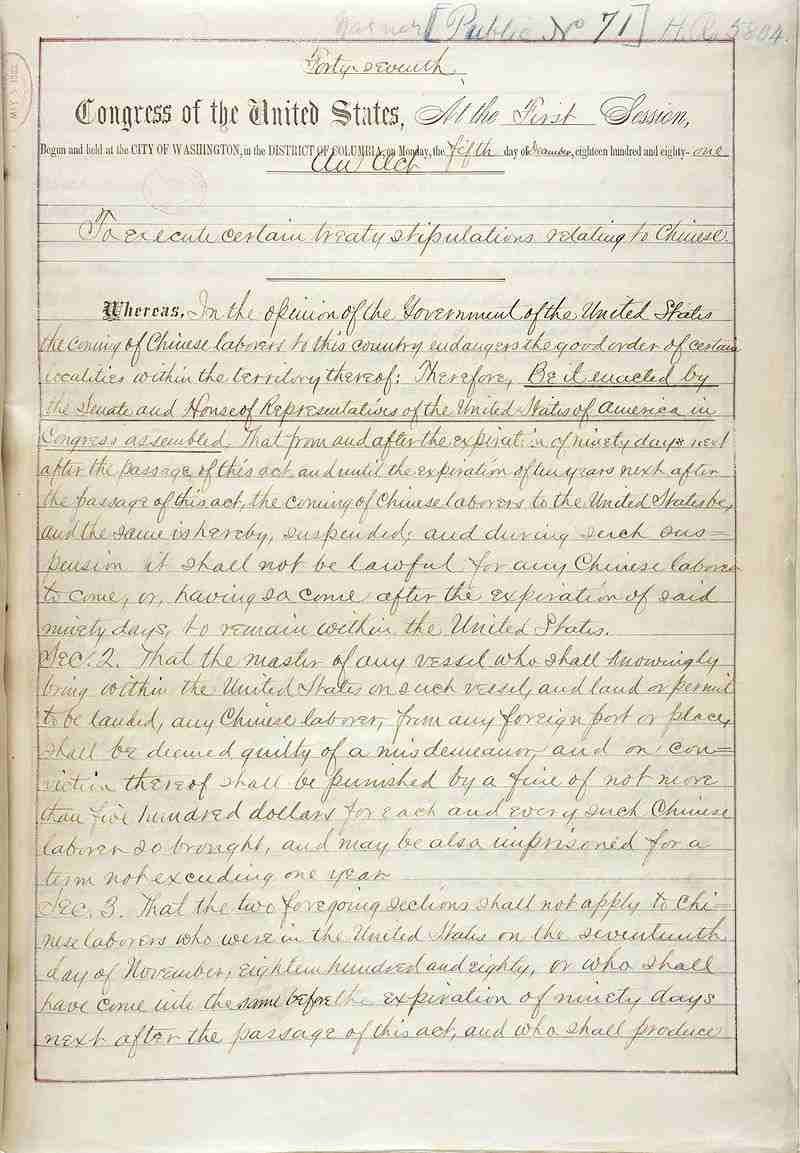 [Public No 71] H.R. 5804.
Forty-seventh
Congress of the United States, At the First Session,
Begun and held at the CITY OF WASHINGTON, in the DISTRICT OF COLUMBIA, on Monday, the fifth day of December, eighteen hundred and eighty-one
An Act
To execute certain treaty stipulations relating to Chinese.
Whereas, In the opinion of the Government of the United States
the coming of Chinese laborers to this country endangers the good order of certain
localities within the territory thereof: Therefore, Be it enacted by
the Senate and House of Representatives of the United States of America in
Congress assembled, That from and after the expiration of ninety days next
after the passage of this act, and until the expiration of ten years next after
the passage of this act, the coming of Chinese laborers to the United States be,
and the same is hereby, suspended; and during such sus=
pension it shall not be lawful for any Chinese laborer
to come, or, having so come after the expiration of said
ninety days, to remain within the United States.
SEC. 2. That the master of any vessel who shall knowingly
bring within the United States on such vessel, and land or permit
to be landed, any Chinese laborer, from any foreign port or place,
shall be deemed guilty of a misdemeanor, and on con=
viction thereof shall be punished by a fine of not more
than five hundred dollars for each and every such Chinese
laborer so brought, and may be also imprisoned for a
term not exceeding one year.
SEC. 3. That the two foregoing sections shall not apply to Chi=
nese laborers who were in the United States on the seventeenth
day of November, eighteen hundred and eighty, or who shall
have come into the same before the expiration of ninety days
next after the passage of this act, and who shall produce